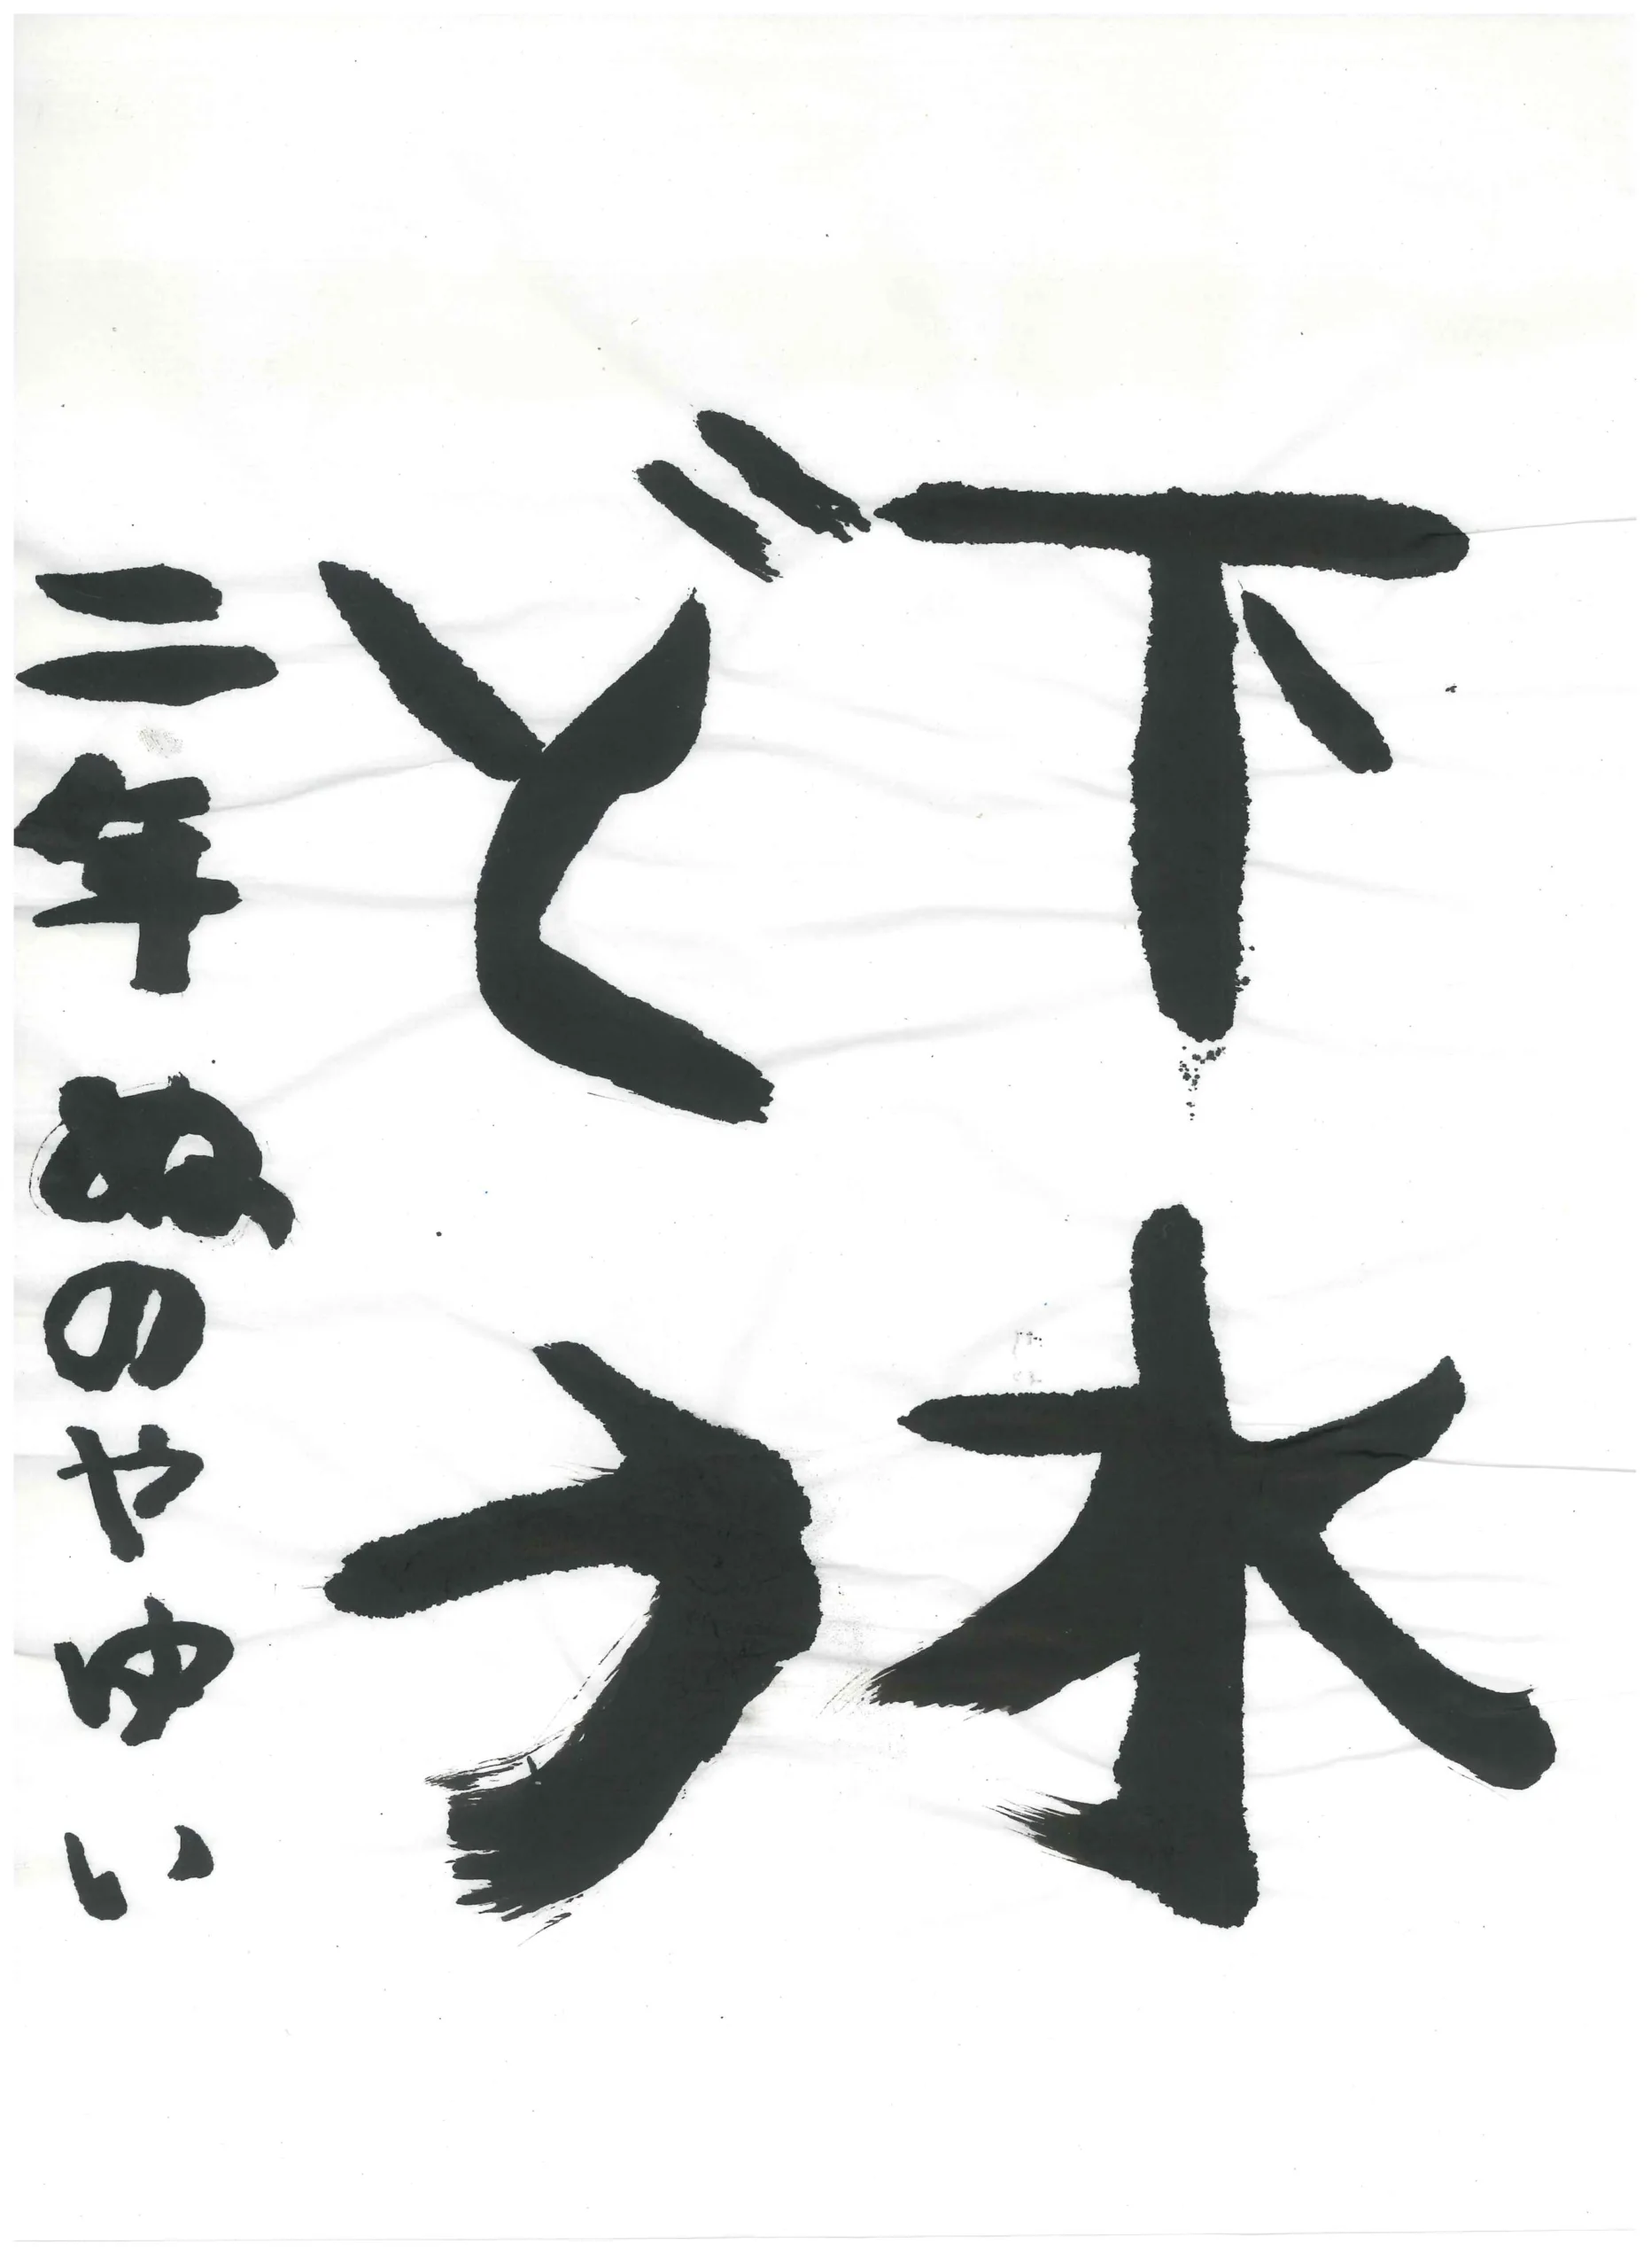 下水
どう
二年 ぬのやゆい